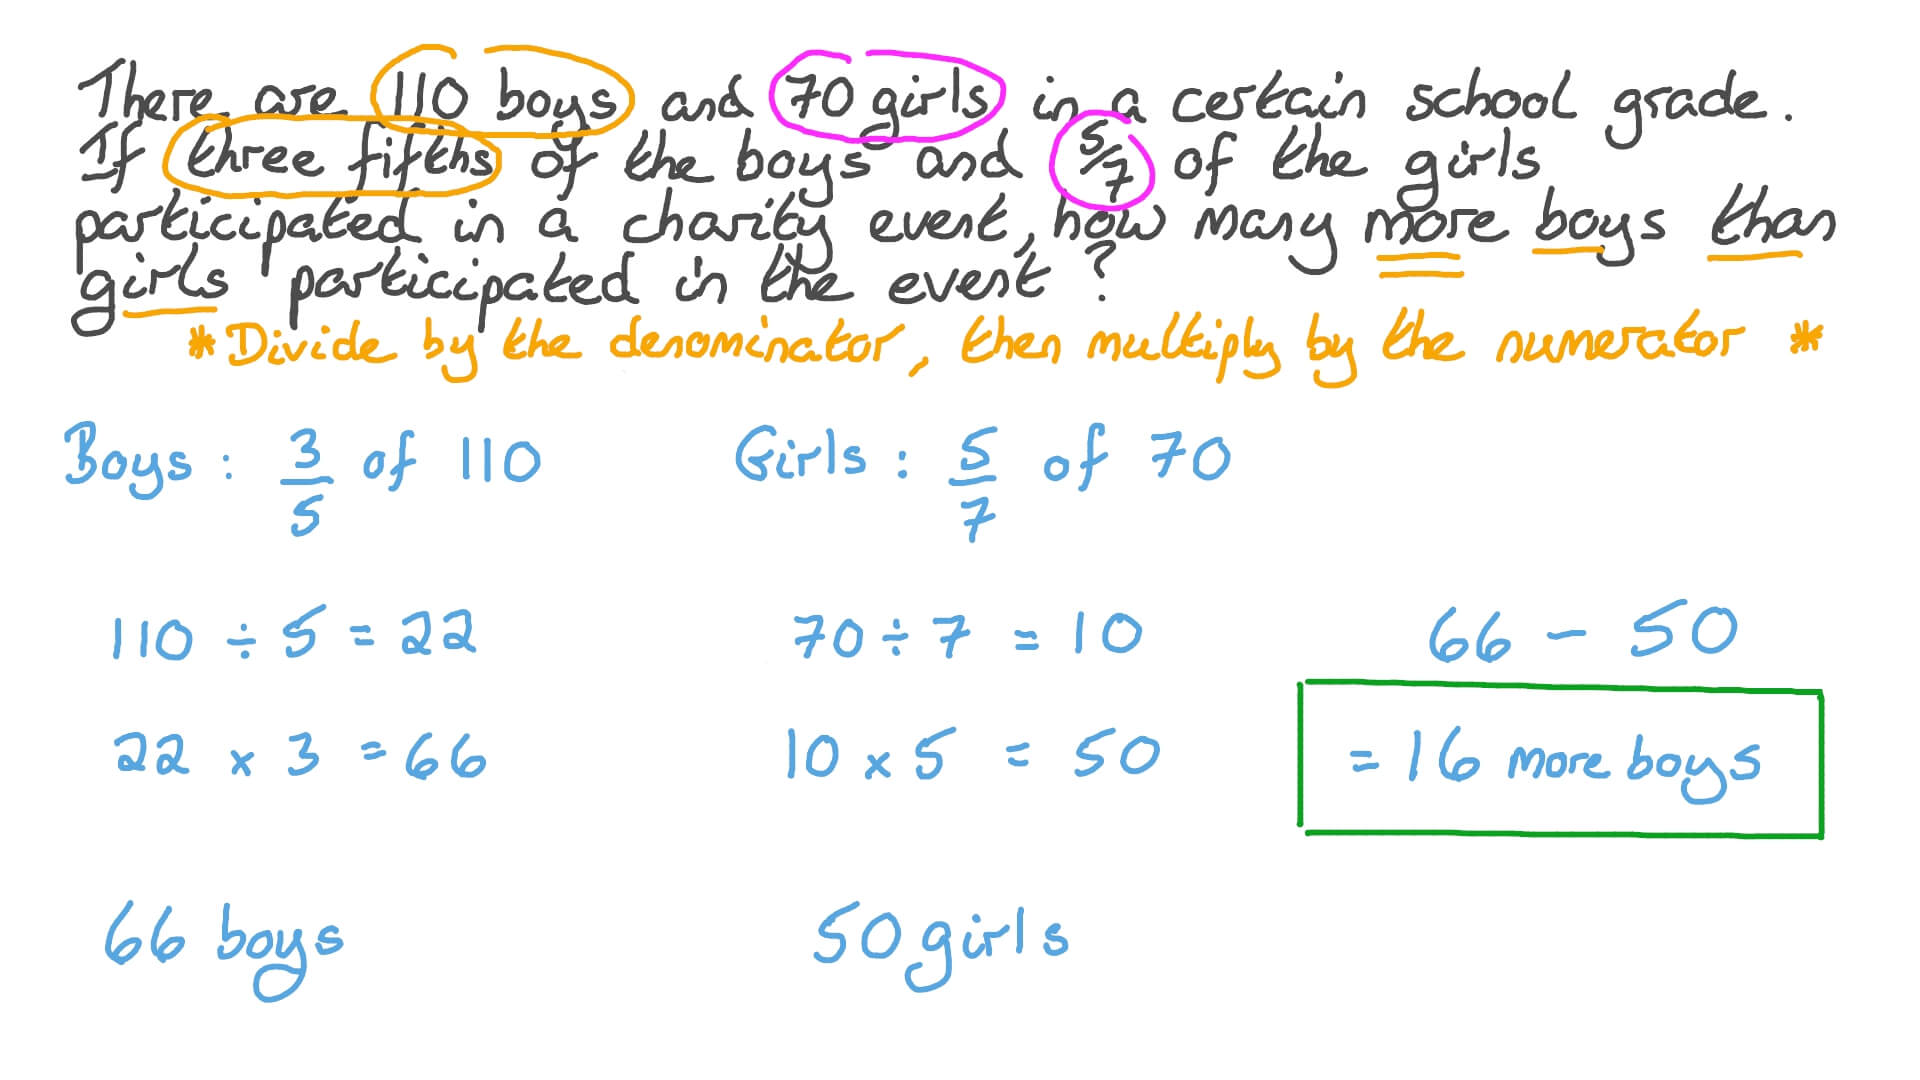 There are 110 boys and 70 girls in a certain school grade.
If three fifths of the boys and 5/7 of the girls
participated in a charity event, how many more boys than
girls participated in the event?
*Divide by the denominator, then multiply by the numerator *
Boys : 3/5 of 110
Girls : 5/7 of 70
110 ÷ 5 = 22
70 ÷ 7 = 10
66 - 50
22 x 3 = 66
10 x 5 = 50
= 16 more boys
66 boys
50 girls